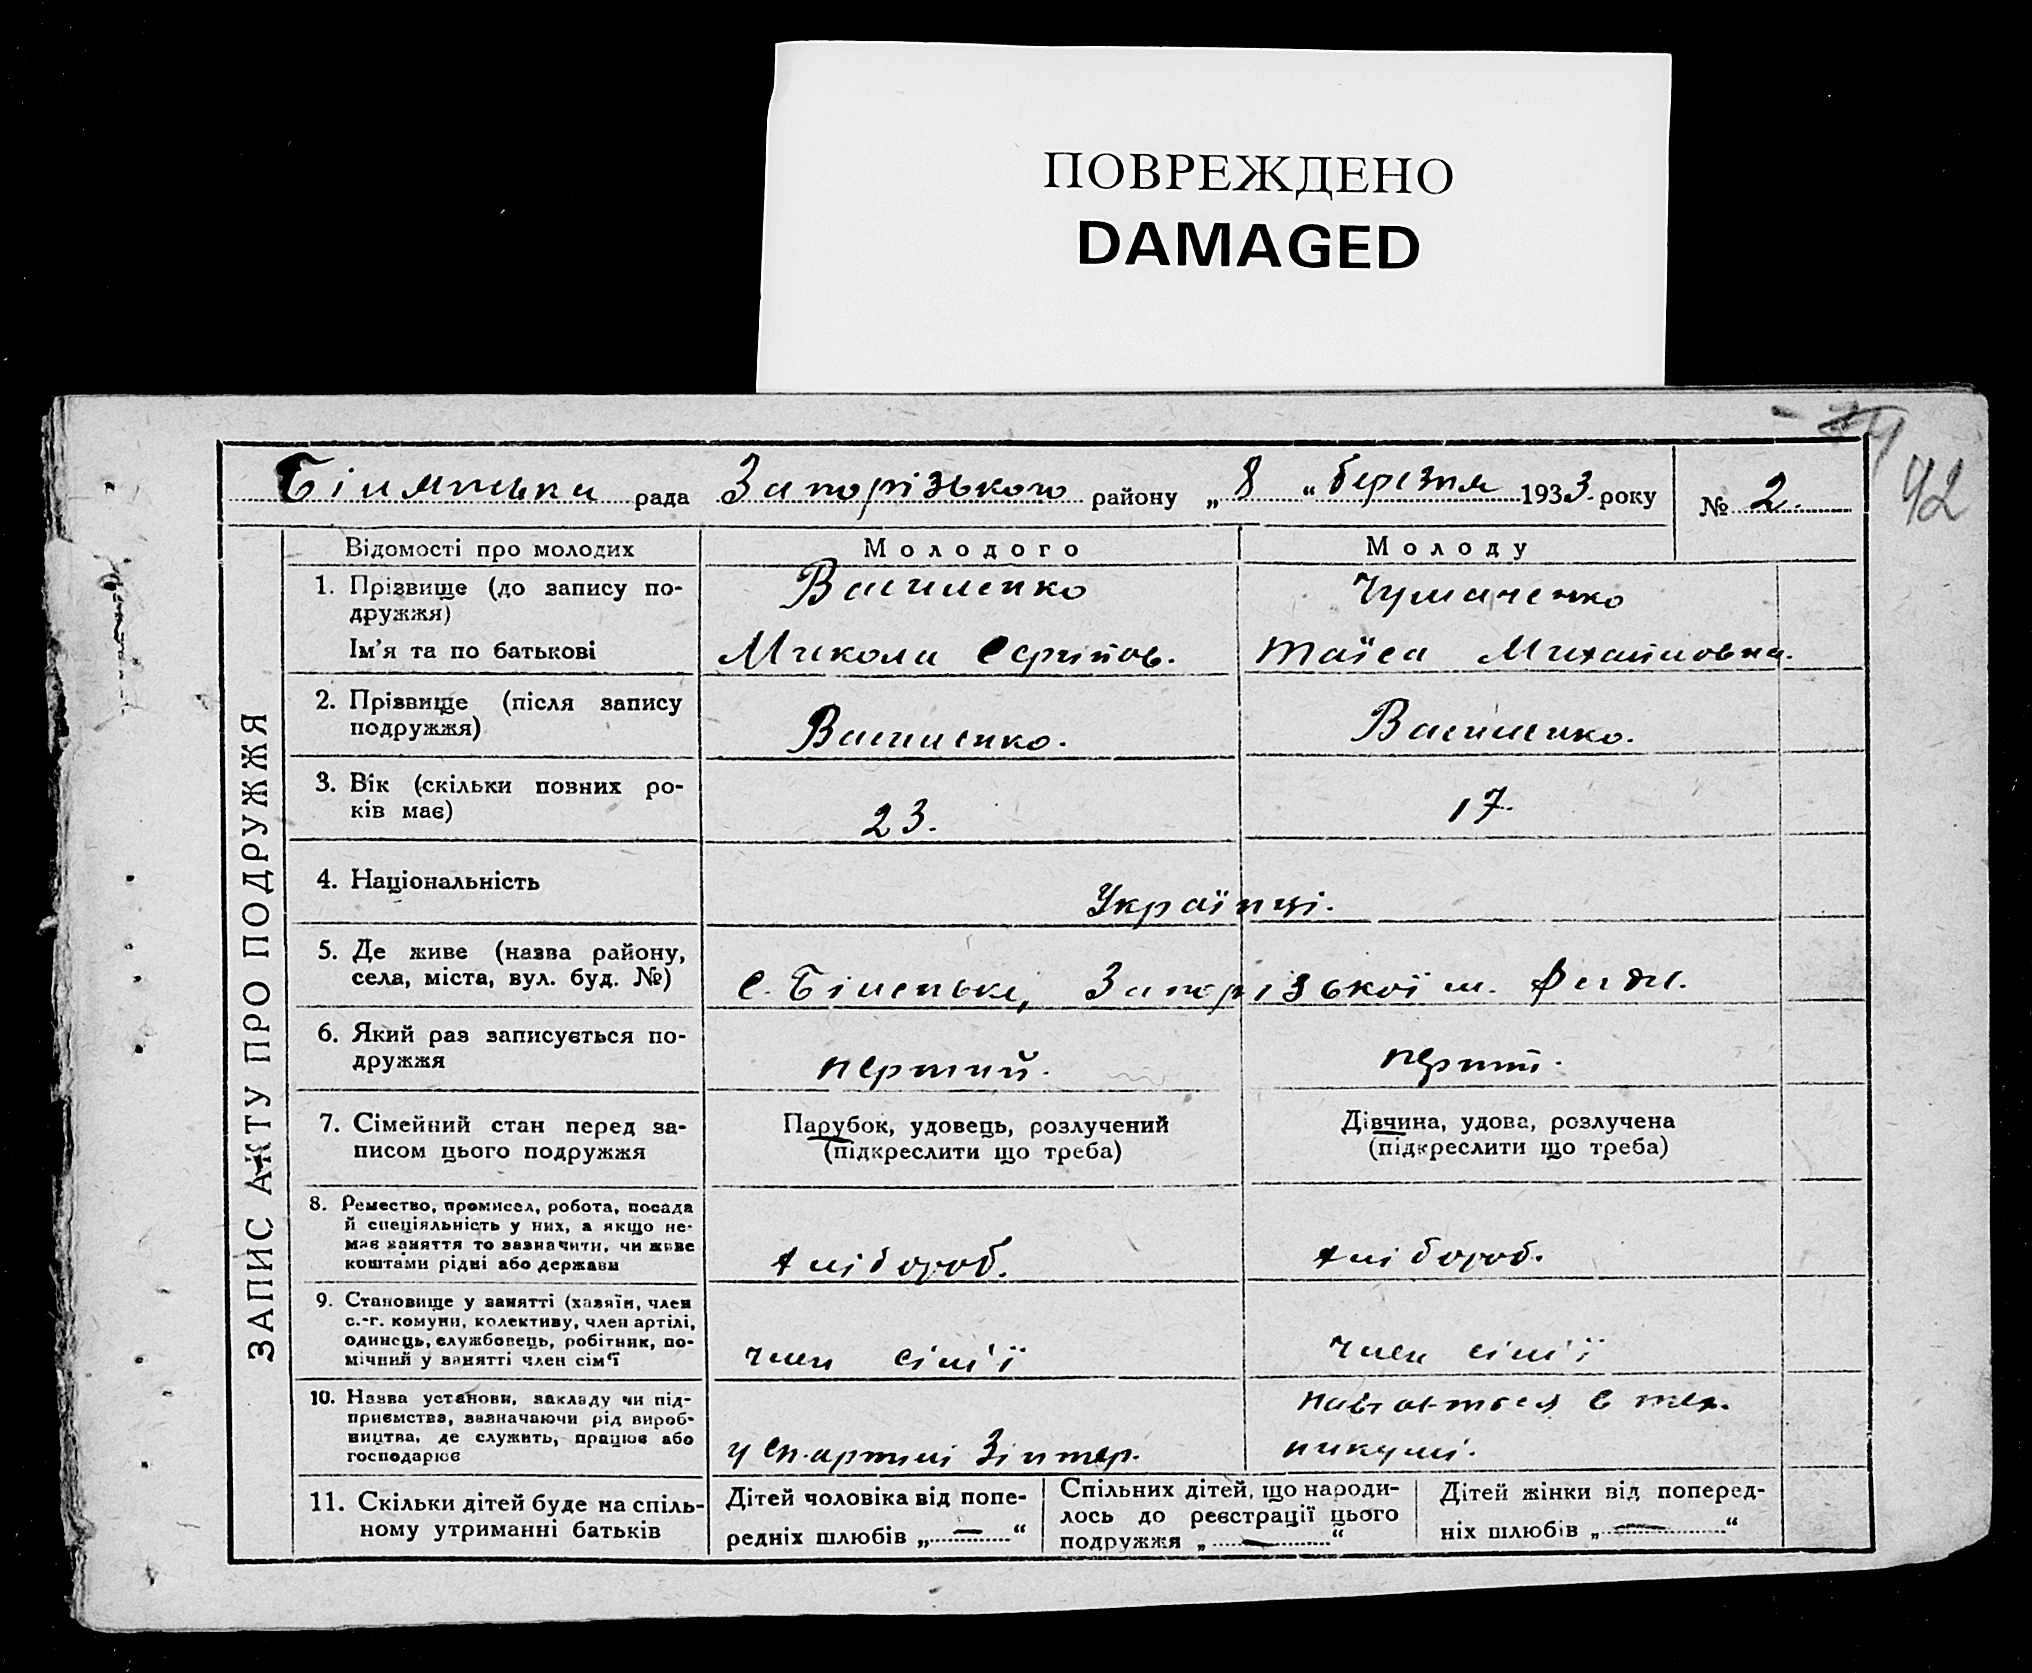 ПОВРЕЖДЕНО
DAMAGED
42
Біленська рада Запорізького району „ 8 “ березня 1933 року № 2.
ЗАПИС АКТУ ПРО ПОДРУЖЖЯ
Відомості про молодих Молодого Молоду
1. Прізвище (до запису по-
дружжя)
Василенко Чумаченко
Ім'я та по батькові Микола Микайловна.
2. Прізвище (після запису
подружжя)
Василенко. Василенко.
3. Вік (скільки повних ро-
ків має)
23. 17.
4. Національність Українці.
5. Де живе (назва району,
села, міста, вул. буд. №)
с. Біленьке, Запорізької м.
6. Який раз записується по-
дружжя
перший. перший.
7. Сімейний стан перед за-
писом цього подружжя
Парубок, удовець, розлучений
(підкреслити що треба)
Дівчина, удова, розлучена
(підкреслити що треба)
8. Ремество, промисел, робота, посада
й спеціяльність у них, а якщо не-
має заняття то зазначити, чи живе
коштами рідні або держави
хлібороб. хлібороб.
9. Становище у занятті (хазяїн, член
с.-г. комуни, колективу, член артілі,
одинець, службовець, робітник, по-
мічний у занятті член сім'ї
член сім'ї член сім'ї
10. Назва установи, закладу чи під-
приємства, зазначаючи рід вироб-
ництва, де служить, працює або
господарює
у артилі
никумі.
11. Скільки дітей буде на спіль-
ному утриманні батьків
Дітей чоловіка від попе-
редніх шлюбів „ — “
Спільних дітей, що народи-
лось до реєстрації цього
подружжя „ — “
Дітей жінки від поперед-
ніх шлюбів „ — “